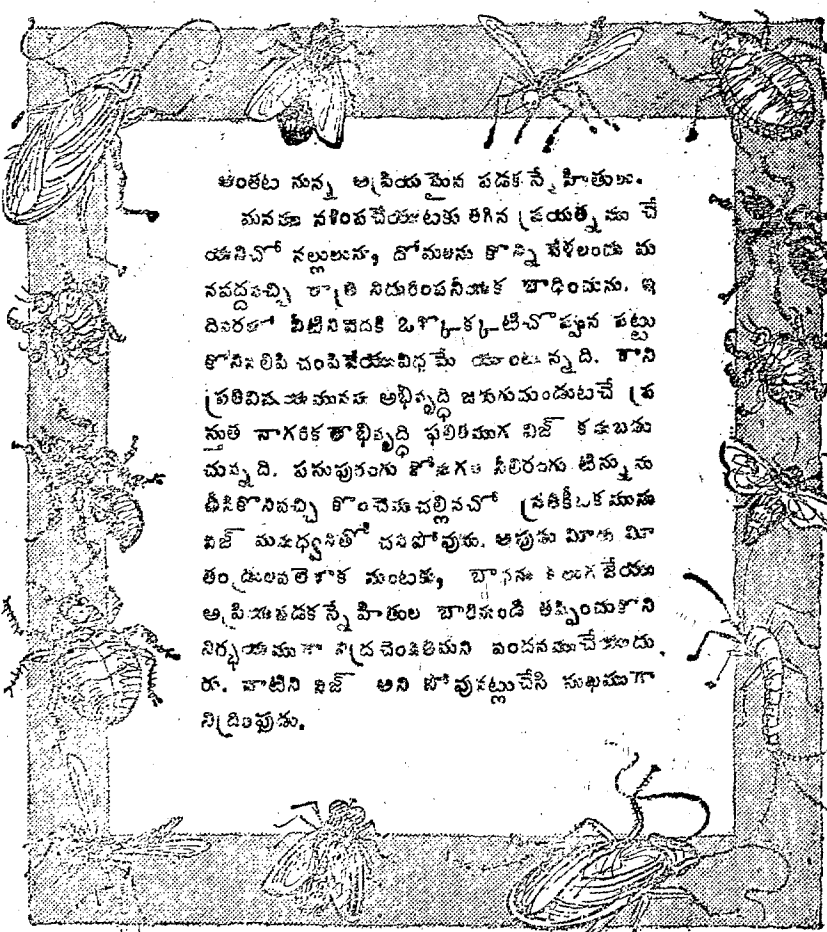 అంతట నున్న అప్రియమైన పడకన్నే హితులు.
మనము నశింపచేయుటకు తగిన ప్రయత్నము చే
యనిచో నల్లులును, దోమలును కొన్ని వేళలందు మ
నవద్దవచ్చి రాత్రి నిదురింపనీయక బాధించును. ఇ
దివరలో వీటినివెదకి ఒక్కొక్కటిచొప్పున పట్టు
కొనినలిపి చంపివేయువిధమే యుంటున్నది. కాని
ప్రతివిషయమునను అభివృద్ధి జరుగుచుండుటచే ప్ర
స్తుత నాగరికతాభివృద్ధి ఫలితముగ విజ్ కనుబడు
చున్నది. పసుపురంగు నీలిరంగు టిన్నును
తీసికొనివచ్చి కొంచెముచల్లినచో ప్రతికీటకమును
విజ్ చనిపోవును. అపుడు మీరు మీ
తండ్రులవలెకాక మంటకు, బాధను కలుగజేయు
అప్రియపడకన్నే హితుల బారినుండి తప్పించుకొని
నిర్భయముగా నిద్రచెందితిమని వందనముచేయుదు
రు. వాటిని విజ్ అని పోవునట్లుచేసి సుఖముగా
నిద్రింపుడు.